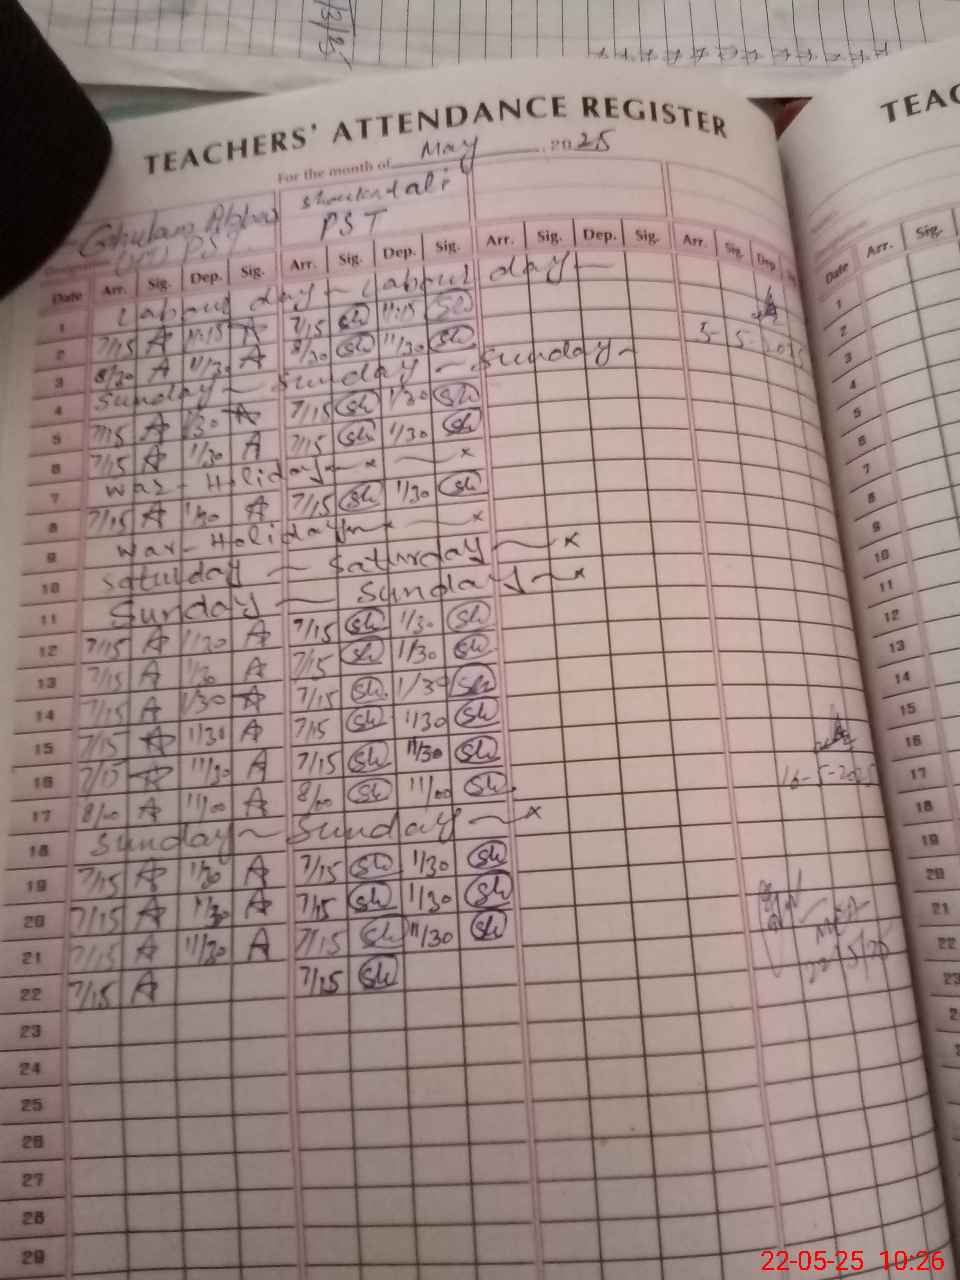 13/25
TEACHERS' ATTENDANCE REGISTER
TEAC
For the month of May 2025
Ghulam
PST
ali
PST
Date Arr. Sig. Dep. Sig. Arr. Sig. Dep. Sig. Arr. Sig. Dep. Sig. Arr. Sig. Dep.
Arr. Sig.
1 Labour day - Labour day -
2 7/15 A 11:15 A 7/15 Sh 11:15 Sh
3 8/30 A 11/30 A 8/30 Sh 11/30 Sh 5-5-2025
4 Sunday - Sunday - Sunday -
5 7/15 A 1/30 A 7/15 Sh 1/30 Sh
6 7/15 A 1/30 A 7/15 Sh 1/30 Sh
7 War - Holiday - x - x
8 7/15 A 1/30 A 7/15 Sh 1/30 Sh
9 War - Holiday x - x
10 Saturday - Saturday - x
11 Sunday - Sunday - x
12 7/15 A 1/30 A 7/15 Sh 1/30 Sh
13 7/15 A 1/30 A 7/15 Sh 1/30 Sh
14 7/15 A 1/30 A 7/15 Sh 1/30 Sh
15 7/15 A 1/30 A 7/15 Sh 1/30 Sh
16 7/15 A 11/30 A 7/15 Sh 11/30 Sh 16-5-2025
17 8/00 A 11/00 A 8/00 Sh 11/00 Sh
18 Sunday - Sunday - x
19 7/15 A 1/30 A 7/15 Sh 1/30 Sh
20 7/15 A 11/30 A 7/15 Sh 1/30 Sh
21 7/15 A 11/30 A 7/15 Sh 11/30 Sh
22 7/15 A 7/15 Sh 22/5/25
23
24
25
26
27
28
29
1
2
3
4
5
6
7
8
9
10
11
12
13
14
15
16
17
18
19
20
21
22
23
22-05-25 10:26